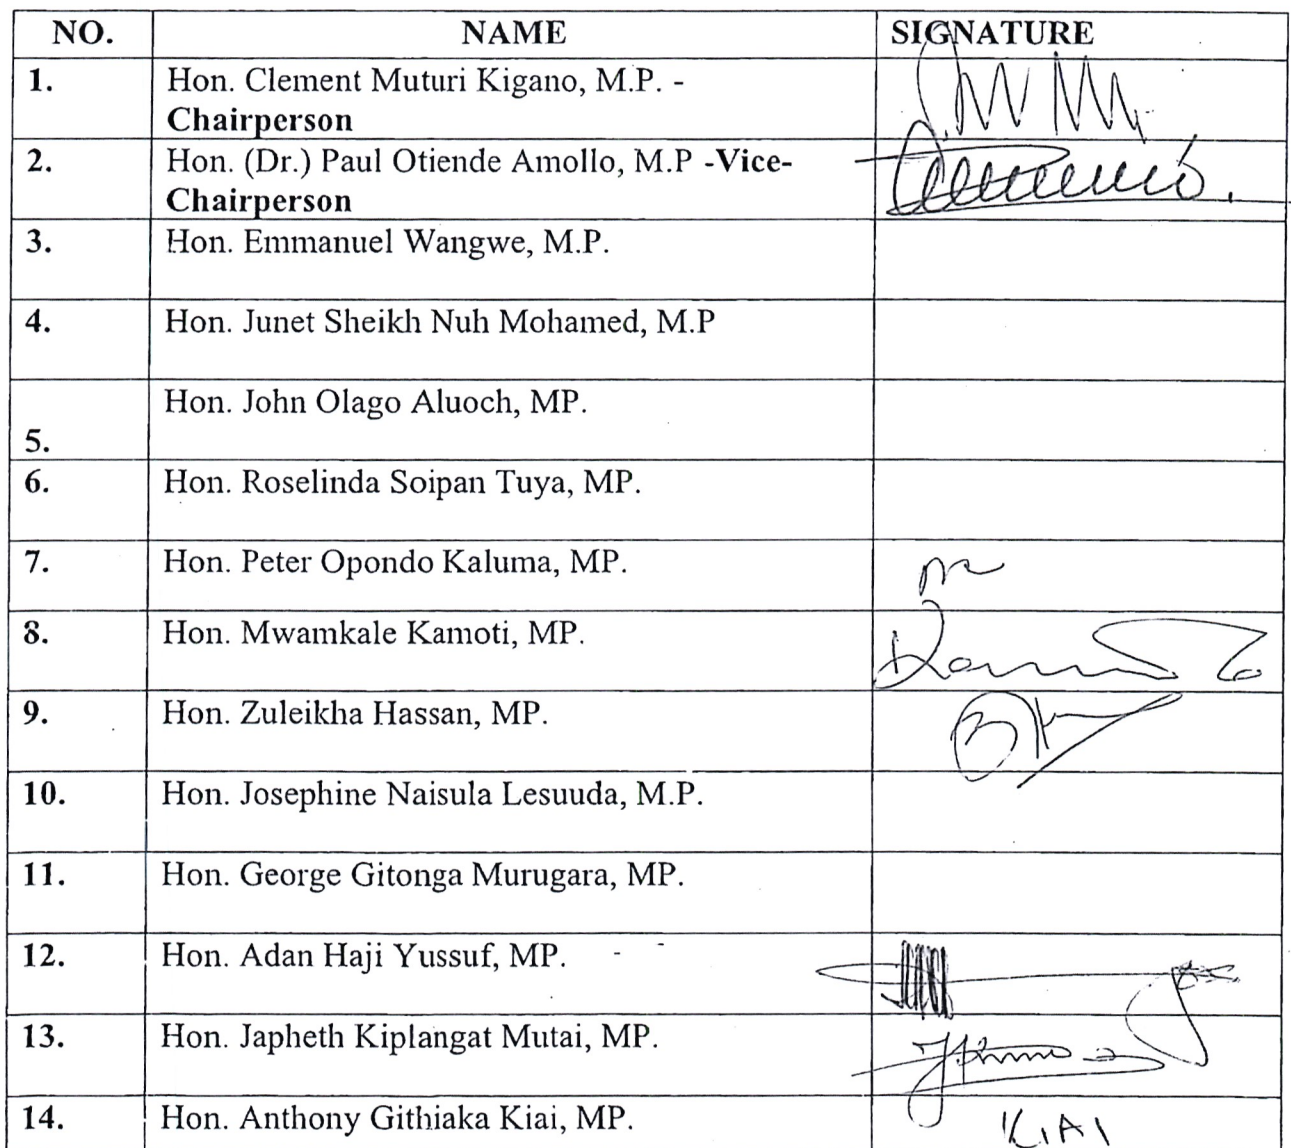 NO. NAME SIGNATURE
1. Hon. Clement Muturi Kigano, M.P. -
Chairperson
2. Hon. (Dr.) Paul Otiende Amollo, M.P -Vice-
Chairperson
3. Hon. Emmanuel Wangwe, M.P.
4. Hon. Junet Sheikh Nuh Mohamed, M.P
Hon. John Olago Aluoch, MP.
5.
6. Hon. Roselinda Soipan Tuya, MP.
7. Hon. Peter Opondo Kaluma, MP.
8. Hon. Mwamkale Kamoti, MP.
9. Hon. Zuleikha Hassan, MP.
10. Hon. Josephine Naisula Lesuuda, M.P.
11. Hon. George Gitonga Murugara, MP.
12. Hon. Adan Haji Yussuf, MP.
13. Hon. Japheth Kiplangat Mutai, MP.
14. Hon. Anthony Githiaka Kiai, MP. KIAI